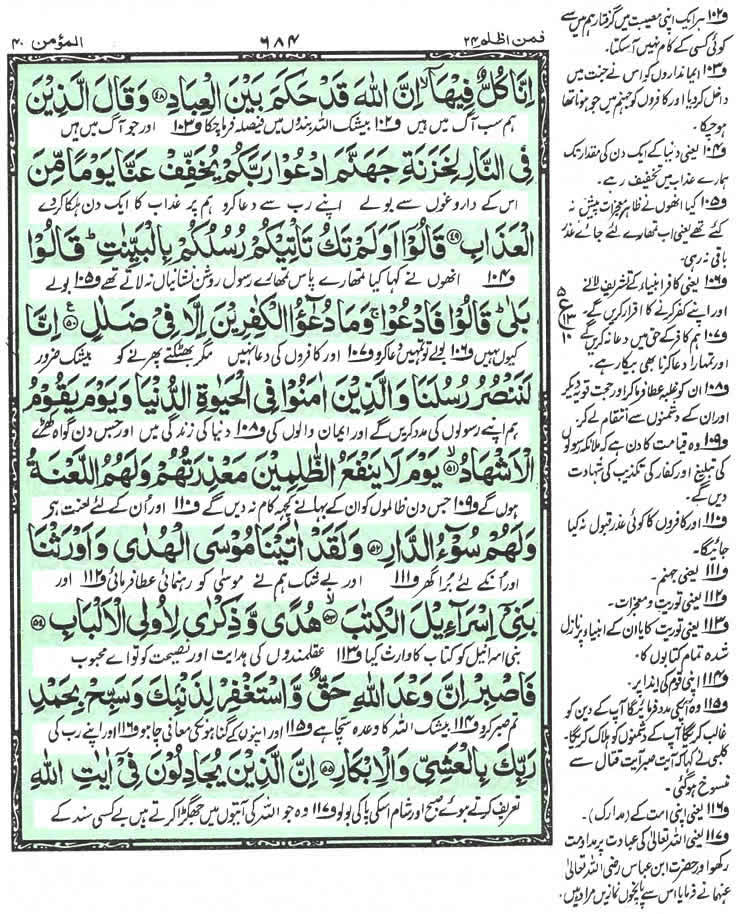 المؤمن ۴۰
۶۸۴
فمن اظلم ۲۴
اِنَّا كُلٌّ فِيْهَاۤ ۙ اِنَّ اللّٰهَ قَدْ حَكَمَ بَيْنَ الْعِبَادِ ﴿۴۸﴾ وَقَالَ الَّذِيْنَ
ہم سب آگ میں ہیں ف۱۰۲ بیشک اللہ بندوں میں فیصلہ فرماچکا ف۱۰۳ اور جو آگ میں ہیں
فِى النَّارِ لِخَزَنَةِ جَهَنَّمَ ادْعُوْا رَبَّكُمْ يُخَفِّفْ عَنَّا يَوْمًا مِّنَ
اس کے داروغوں سے بولے اپنے رب سے دعا کرو ہم پر عذاب کا ایک دن ہلکا کردے
الْعَذَابِ ﴿۴۹﴾ قَالُوْۤا اَوَلَمْ تَكُ تَاْتِيْكُمْ رُسُلُكُمْ بِالْبَيِّنٰتِ ؕ قَالُوْا
ف۱۰۴ انھوں نے کہا کیا تمھارے پاس تمھارے رسول روشن نشانیاں نہ لاتے تھے ف۱۰۵ بولے
بَلٰى ؕ قَالُوْا فَادْعُوْا ۚ وَمَا دُعٰٓؤُا الْكٰفِرِيْنَ اِلَّا فِىْ ضَلٰلٍ ﴿۵۰﴾ اِنَّا
کیوں نہیں ف۱۰۶ بولے تو تمہیں دعا کرو ف۱۰۷ اور کافروں کی دعا نہیں مگر بھٹکتے پھرنے کو بیشک ضرور
لَنَنْصُرُ رُسُلَنَا وَالَّذِيْنَ اٰمَنُوْا فِى الْحَيٰوةِ الدُّنْيَا وَيَوْمَ يَقُوْمُ
ہم اپنے رسولوں کی مدد کریں گے اور ایمان والوں کی ف۱۰۸ دنیا کی زندگی میں اور جس دن گواہ کھڑے
الْاَشْهَادُ ﴿۵۱﴾ يَوْمَ لَا يَنْفَعُ الظّٰلِمِيْنَ مَعْذِرَتُهُمْ وَلَهُمُ اللَّعْنَةُ
ہوں گے ف۱۰۹ جس دن ظالموں کو ان کے بہانے کچھ کام نہ دیں گے ف۱۱۰ اور اُن کے لئے لعنت ہی
وَلَهُمْ سُوْٓءُ الدَّارِ ﴿۵۲﴾ وَلَقَدْ اٰتَيْنَا مُوْسَى الْهُدٰى وَاَوْرَثْنَا
اور اُنکے لئے بُرا گھر ف۱۱۱ اور بے شک ہم نے موسٰی کو رہنمائی عطا فرمائی ف۱۱۲ اور
بَنِىْۤ اِسْرَآءِيْلَ الْكِتٰبَ ﴿۵۳﴾ هُدًى وَّذِكْرٰى لِاُولِى الْاَلْبَابِ ﴿۵۴﴾
بنی اسرائیل کو کتاب کا وارث کیا ف۱۱۳ عقلمندوں کی ہدایت اور نصیحت کو تو اے محبوب
فَاصْبِرْ اِنَّ وَعْدَ اللّٰهِ حَقٌّ وَّاسْتَغْفِرْ لِذَنْۢبِكَ وَسَبِّحْ بِحَمْدِ
تم صبر کرو ف۱۱۴ بیشک اللہ کا وعدہ سچا ہے ف۱۱۵ اور اپنوں کے گناہوں کی معافی چاہو ف۱۱۶ اور اپنے رب کی
رَبِّكَ بِالْعَشِىِّ وَالْاِبْكَارِ ﴿۵۵﴾ اِنَّ الَّذِيْنَ يُجَادِلُوْنَ فِىْۤ اٰيٰتِ اللّٰهِ
تعریف کرتے ہوئے صبح اور شام اسکی پاکی بولو ف۱۱۷ وہ جو اللہ کی آیتوں میں جھگڑا کرتے ہیں بے کسی سند کے
ع
۵
۱۳
۱۰
ف۱۰۲ ہر ایک اپنی مصیبت میں گرفتار ہم میں سے
کوئی کسی کے کام نہیں آسکتا۔
ف۱۰۳ ایمانداروں کو اس نے جنت میں
داخل کردیا اور کافروں کو جہنم میں جو ہونا تھا
ہوچکا۔
ف۱۰۴ یعنی دنیا کے ایک دن کی مقدار تک
ہمارے عذاب میں تخفیف رہے۔
ف۱۰۵ کیا انھوں نے ظاہر معجزات پیش نہ
کئے تھے یعنی اب تمھارے لئے جائے عذر
باقی نہ رہی۔
ف۱۰۶ یعنی کافر انبیاء کے تشریف لانے
اور اپنے کفر کا اقرار کریں گے۔
ف۱۰۷ ہم کافر کے حق میں دعا نہ کریں گے
اور تمہارا دعا کرنا بھی بیکار ہے۔
ف۱۰۸ ان کو غلبہ عطا فرما کر اور حجت قویہ دیکر
اور ان کے دشمنوں سے انتقام لے کر۔
ف۱۰۹ وہ قیامت کا دن ہے کہ ملائکہ رسولوں
کی تبلیغ اور کفار کی تکذیب کی شہادت
دیں گے۔
ف۱۱۰ اور کافروں کا کوئی عذر قبول نہ کیا
جائیگا۔
ف۱۱۱ یعنی جہنم۔
ف۱۱۲ یعنی توریت و معجزات۔
ف۱۱۳ یعنی توریت کا یا ان کے انبیاء پر نازل
شدہ تمام کتابوں کا۔
ف۱۱۴ اپنی قوم کی ایذا پر۔
ف۱۱۵ وہ آپکی مدد فرمائیگا آپ کے دین کو
غالب کریگا آپ کے دشمنوں کو ہلاک کریگا۔
کلبی نے کہا کہ آیت صبر آیت قتال سے
منسوخ ہوگئی۔
ف۱۱۶ یعنی اپنی امت کے (مدارک)۔
ف۱۱۷ یعنی اللہ تعالیٰ کی عبادت پر مداومت
رکھو اور حضرت ابن عباس رضی اللہ تعالیٰ
عنہما نے فرمایا اس سے پانچوں نمازیں مراد ہیں۔